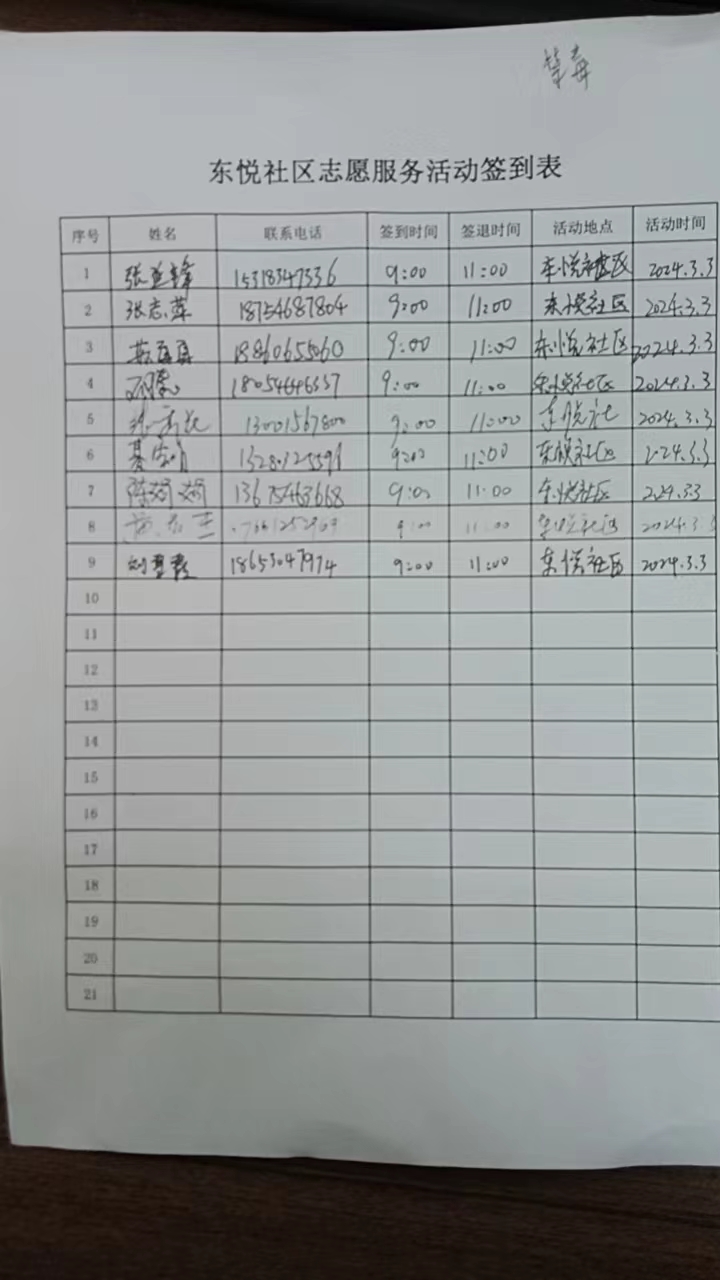 草莓
东悦社区志愿服务活动签到表
序号 姓名 联系电话 签到时间 签退时间 活动地点 活动时间
1 张 锋 15318347336 9:00 11:00 东悦社区 2024.3.3
2 张志萍 18754687804 9:00 11:00 东悦社区 2024.3.3
3 18860655060 9:00 11:00 东悦社区 2024.3.3
4 9:00 11:00 东悦社区 2024.3.3
5 13001567800 9:00 11:00 东悦社 2024.3.3
6 9:00 11:00 东悦社区 2024.3.3
7 13675463668 9:00 11:00 东悦社区
8 9:00 11:00 东悦社区 2024.3.3
9 18653047974 9:00 11:00 东悦社区 2024.3.3
10
11
12
13
14
15
16
17
18
19
20
21